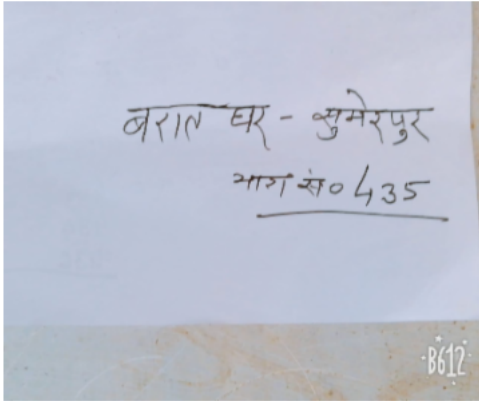 बरात घर - सुमेरपुर
भाग सं० 435
B612